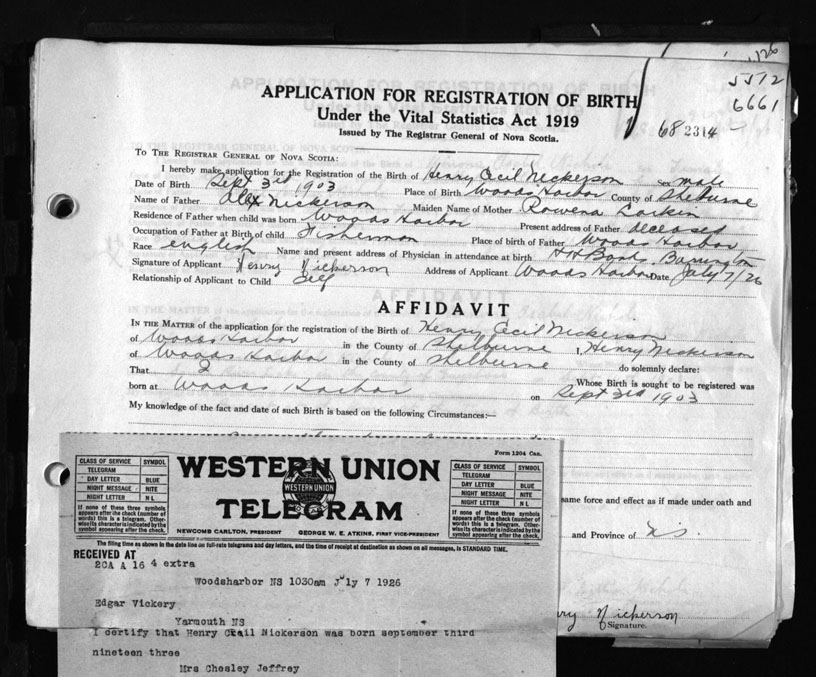 1126
5572
6661
682314
APPLICATION FOR REGISTRATION OF BIRTH
Under the Vital Statistics Act 1919
Issued by The Registrar General of Nova Scotia.
TO THE REGISTRAR GENERAL OF NOVA SCOTIA:
I hereby make application for the Registration of the Birth of Henry Cecil Nickerson Sex male
Date of Birth Sept 3rd 1903 Place of Birth Woods Harbor County of Shelburne
Name of Father Alex Nickerson Maiden Name of Mother Rowena Larkin
Residence of Father when child was born Woods Harbor Present address of Father deceased
Occupation of Father at Birth of child Fisherman Place of birth of Father Woods Harbor
Race english Name and present address of Physician in attendance at birth Barrington
Signature of Applicant Henry Nickerson Address of Applicant Woods Harbor Date July 7/26
Relationship of Applicant to Child Self
AFFIDAVIT
IN THE MATTER of the application for the registration of the Birth of Henry Cecil Nickerson
of Woods Harbor in the County of Shelburne I, Henry Nickerson
of Woods Harbor in the County of Shelburne do solemnly declare:
That I Whose Birth is sought to be registered was
born at Woods Harbor on Sept 3rd 1903
My knowledge of the fact and date of such Birth is based on the following Circumstances:—
same force and effect as if made under oath and
and Province of N.S.
ry Nickerson
Signature.
Form 1204 Can.
CLASS OF SERVICE SYMBOL
TELEGRAM
DAY LETTER BLUE
NIGHT MESSAGE NITE
NIGHT LETTER N L
If none of these three symbols appears after the check (number of words) this is a telegram. Otherwise its character is indicated by the symbol appearing after the check.
WESTERN UNION
WESTERN UNION
TELEGRAM
NEWCOMB CARLTON, PRESIDENT GEORGE W. E. ATKINS, FIRST VICE-PRESIDENT
CLASS OF SERVICE SYMBOL
TELEGRAM
DAY LETTER BLUE
NIGHT MESSAGE NITE
NIGHT LETTER N L
If none of these three symbols appears after the check (number of words) this is a telegram. Otherwise its character is indicated by the symbol appearing after the check.
The filing time as shown in the date line on full-rate telegrams and day letters, and the time of receipt at destination as shown on all messages, is STANDARD TIME.
RECEIVED AT
2CA A 16 4 extra
Woodsharbor NS 1030am July 7 1926
Edgar Vickery
Yarmouth NS
I certify that Henry Cecil Nickerson was born september third
nineteen three
Mrs Chesley Jeffrey